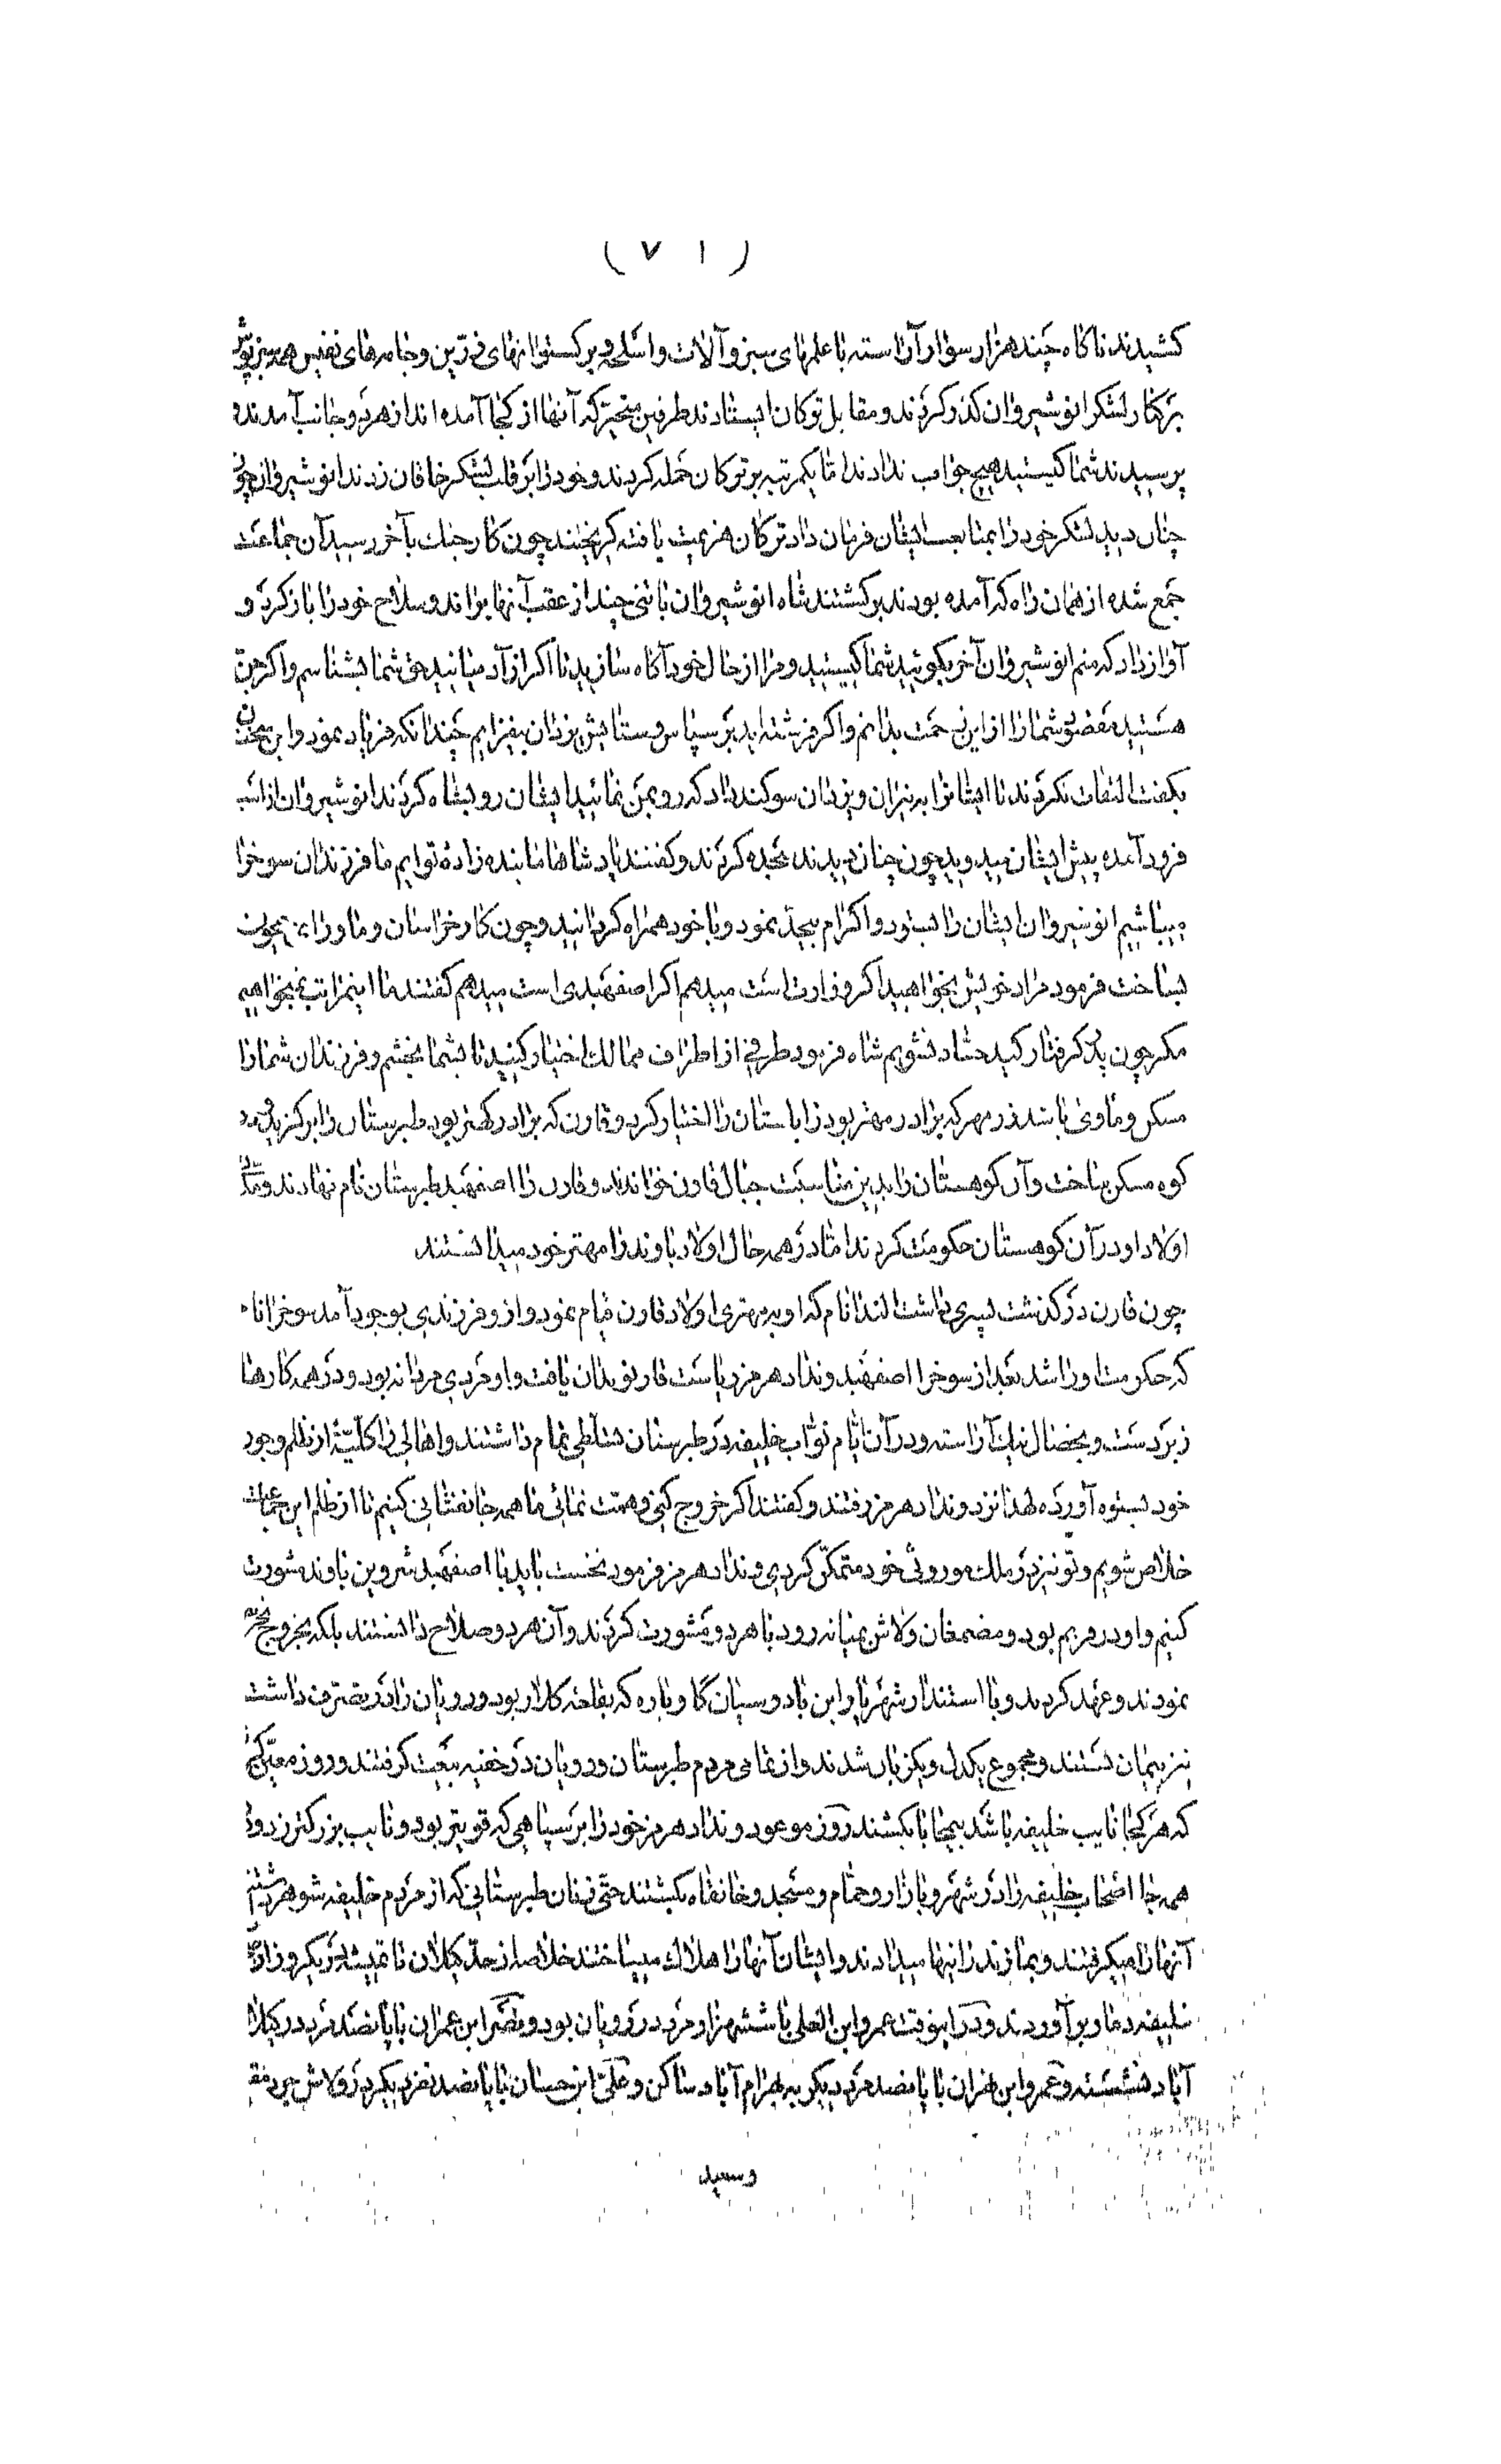 ( ۷۱ )
کشیدند ناکاه چند هزار سوار آراسته با علمهای سبز و آلات و اسلحه و برکستوانهای زرّین و جامه‌های نفیس همه سبز پوش
بر کنار لشکر انوشیروان کذر کردند و مقابل ترکان ایستادند طرفین متحیّر که آنها از کجا آمده‌اند از هر دو جانب آمدند و
پرسیدند شما کیستید هیچ جواب ندادند امّا یکمرتبه بر ترکان حمله کردند و خود را بر قلب لشکر خاقان زدند انوشیروان چون
چنان دید لشکر خود را بمتابعت ایشان فرمان داد ترکان هزیمت یافته کریختند چون کار جنك بآخر رسید آن جماعت
جمع شده از همان راه که آمده بودند برکشتند شاه انوشیروان با تنی چند از عقب آنها براند و سلاح خود را باز کرد و
آواز داد که منم انوشیروان آخر بکوئید شما کیستید و مرا از حال خود آکاه سازید تا اکر از آدمیانید حق شما بشناسم و اکر جن
هستید مقصود شما را از این زحمت بدانم و اکر فرشته‌اید بر سپاس و ستایش یزدان بیفزایم چندانکه فریاد نمود و این سخنان
بکفت التفات نکردند تا ایشانرا به نیران و یزدان سوکند داد که رو بمن نمائید ایشان رو بشاه کردند انوشیروان از اسب
فرود آمده پیش ایشان میدوید چون چنان دیدند سجده کردند و کفتند پادشاها ما بنده زادهٔ توایم ما فرزندان سوخرا
میباشیم انوشیروان ایشان را بستود و اکرام بیحد نمود و با خود همراه کردانید و چون کار خراسان و ماوراء نهر بخوبی
بساخت فرمود مراد خویش بخواهید اکر وزارت است میدهم اکر اصفهبدی است میدهم کفتند ما اینمراتب نمیخواهیم
مکر چون پدر کرفتار کید حساد نشویم شاه فرمود طرفی از اطراف ممالك اختیار کنید تا بشما بخشم و فرزندان شما را
مسکن و ماوی باشد زرمهر که برادر مهتر بود زابلستان را اختیار کرد و قارن که برادر کهتر بود طبرستان را برکزید و در
کوه مسکن ساخت و آن کوهستان را بدین مناسبت جبال قارن خواندند و قارن را اصفهبد طبرستان نام نهادند و مدّتها
اولاد او در آن کوهستان حکومت کردند امّا در همه حال اولاد باوند را مهتر خود میدانستند
چون قارن در کذشت پسری داشت الندا نام که او به مهتری اولاد قارن قیام نمود و از و فرزندی بوجود آمد سوخرا نام
که حکومت او را شد بعد از سوخرا اصفهبد ونداد هرمز ریاست قارنوندان یافت و او مردی مردانه بود و در همه کارها
زبردست و بخصال نیك آراسته و در آن ایّام نوّاب خلیفه در طبرستان تسلّطی تمام داشتند و اهالی را کلّیّةً از ظلم و جور
خود بستوه آورده لهذا نزد ونداد هرمز رفتند و کفتند اکر خروج کنی و همت نمائی ما همه جانفشانی کنیم تا از ظلم این جماعت
خلاص شویم و تو نیز در ملك موروثی خود متمکّن کردی ونداد هرمز فرمود نخست باید با اصفهبد شروین باوند مشورت
کنیم و او در پریم بود و مصمغان ولاش بمیانه رود با هر دو مشورت کردند و آن هر دو صلاح دانستند بلکه بخروج تحریص
نمودند و عهد کردند و با استندار شهریار ابن بادوسپان کاوباره که بقلعه کلار بود و رویان را در تصرف داشت
نیز پیمان بستند و مجموع یکدل و یکزبان شدند و از تمامی مردم طبرستان و رویان در خفیه بیعت کرفتند و روز معیّن کردند
که هر کجا نایب خلیفه باشد بیمحابا بکشند روز موعود ونداد هرمز خود را بر سپاهی که قویتر بود و نایب بزرکتر زد و از
همه جا اصحاب خلیفه را در شهر و بازار و حمّام و مسجد و خانقاه بکشتند حتّی زنان طبرستانی که از مردم خلیفه شوهر داشتند
آنها را میکرفتند و بمازندرانیها میدادند و ایشان آنها را هلاك میساختند خلاصه از حدّ کیلان تا تمیشه در یکروز از
خلیفه دمار بر آوردند و در اینوقت عمرو ابن العلی با ششهزار مرد در رویان بود و نصر ابن عمران با پانصد مرد در کیلان
آباد نشسته و عمرو ابن مهران با پانصد مرد دیکر به بهرام آباد ساکن و علیّ ابن حسان با پانصد نفر دیکر در ولاش جرد مقیم
وسعید